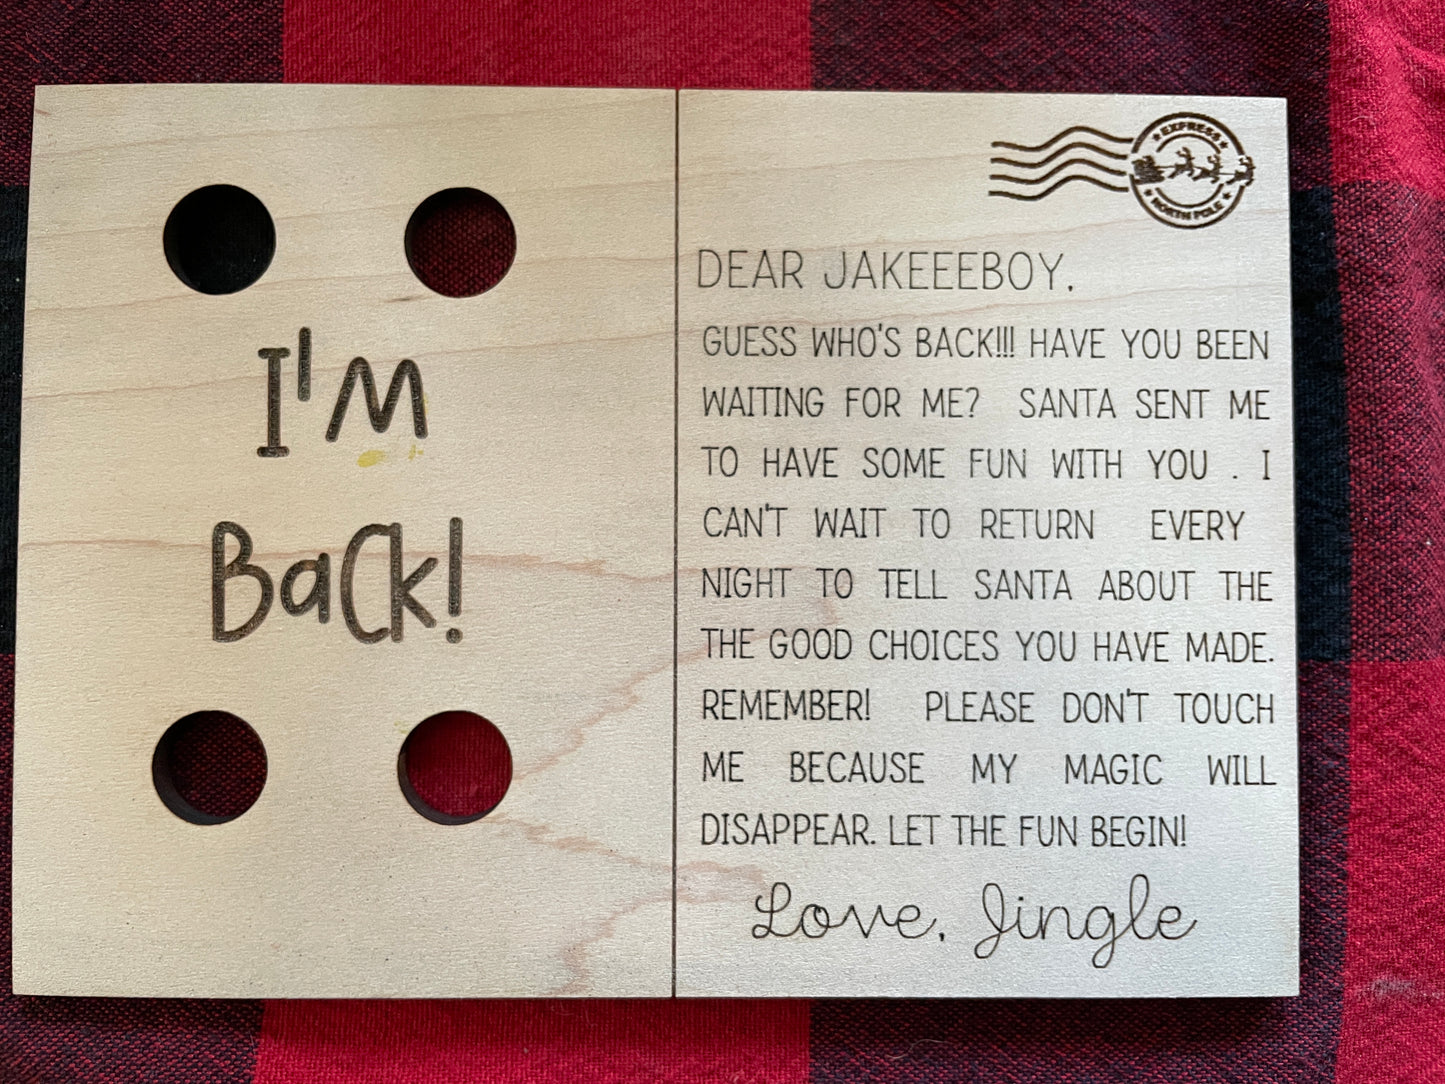 I'm
Back!
EXPRESS
NORTH POLE
DEAR JAKEEEBOY,
GUESS WHO'S BACK!!! HAVE YOU BEEN
WAITING FOR ME? SANTA SENT ME
TO HAVE SOME FUN WITH YOU . I
CAN'T WAIT TO RETURN EVERY
NIGHT TO TELL SANTA ABOUT THE
THE GOOD CHOICES YOU HAVE MADE.
REMEMBER! PLEASE DON'T TOUCH
ME BECAUSE MY MAGIC WILL
DISAPPEAR. LET THE FUN BEGIN!
Love, Jingle